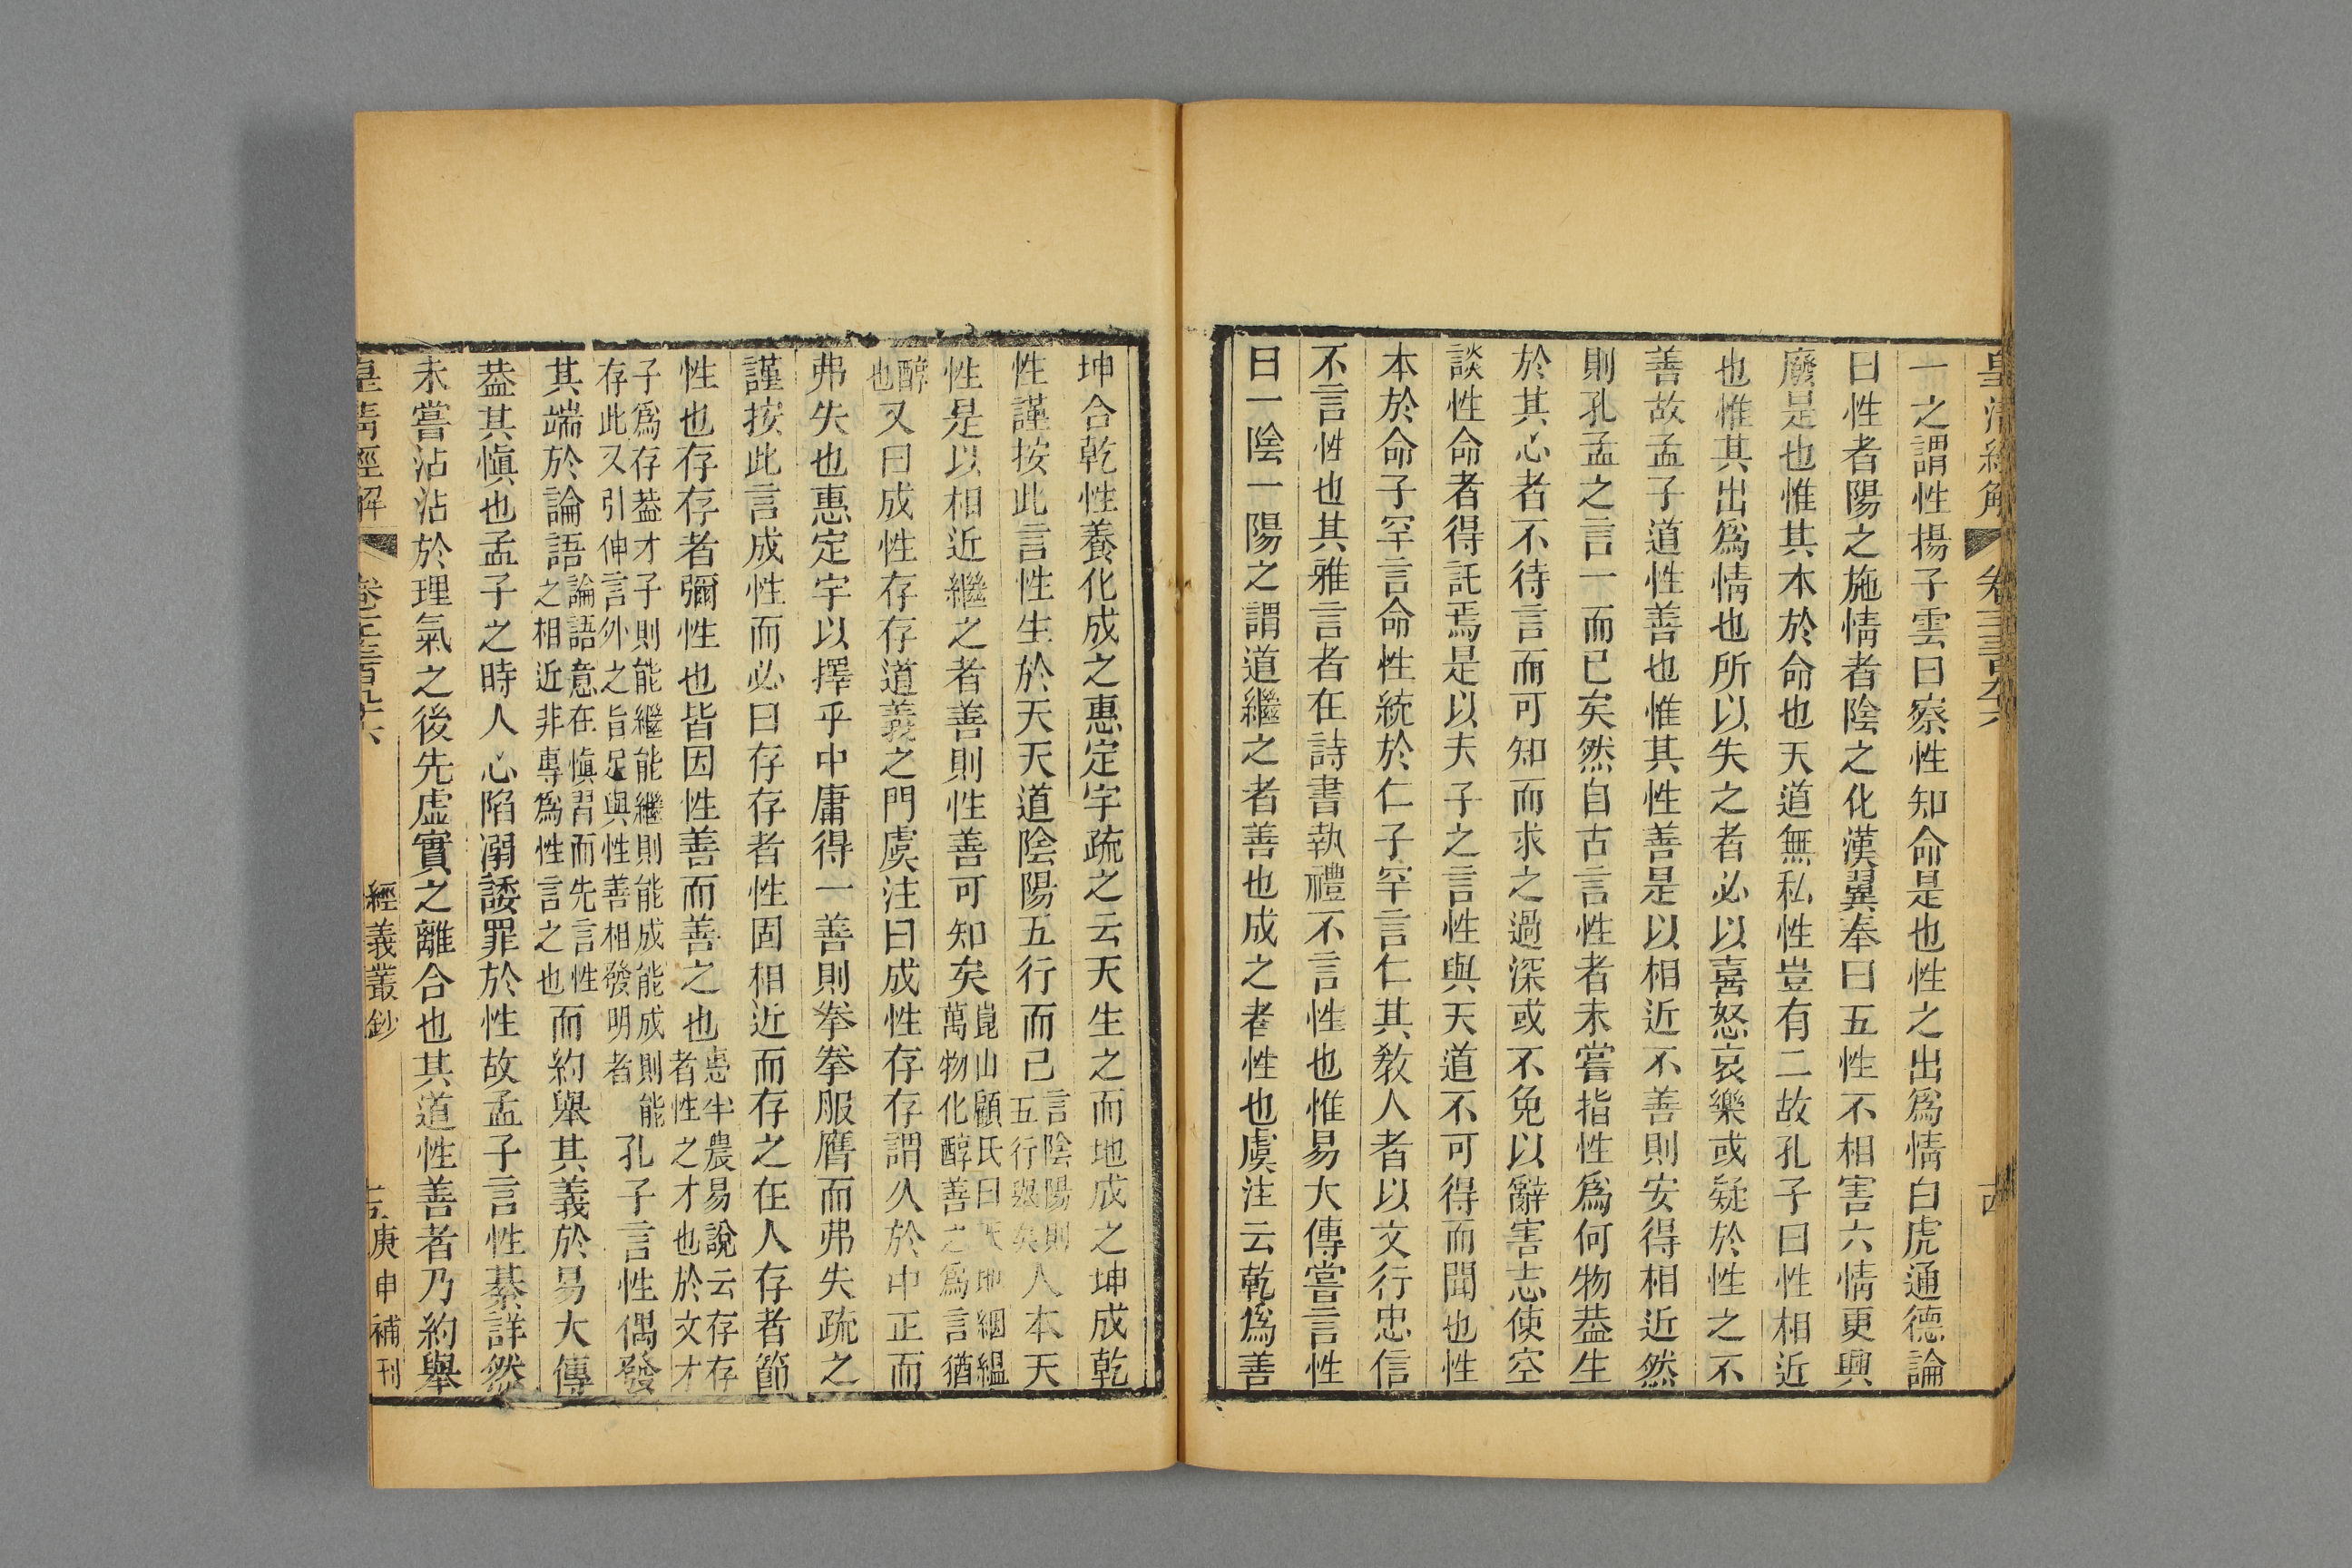 皇清經解
卷千三百九十六
一之謂性揚子雲曰察性知命是也性之出爲情白虎通德論
曰性者陽之施情者陰之化漢翼奉曰五性不相害六情更興
廢是也惟其本於命也天道無私性豈有二故孔子曰性相近
也惟其出爲情也所以失之者必以喜怒哀樂或疑於性之不
善故孟子道性善也惟其性善是以相近不善則安得相近然
則孔孟之言一而已矣然自古言性者未嘗指性爲何物葢生
於其心者不待言而可知而求之過深或不免以辭害志使空
談性命者得託焉是以夫子之言性與天道不可得而聞也性
本於命子罕言命性統於仁子罕言仁其教人者以文行忠信
不言性也其雅言者在詩書執禮不言性也惟易大傳嘗言性
曰一陰一陽之謂道繼之者善也成之者性也虞注云乾爲善
坤合乾性養化成之惠定宇疏之云天生之而地成之坤成乾
性謹按此言性生於天天道陰陽五行而已言陰陽則五行舉矣人本天
性是以相近繼之者善則性善可知矣崑山顧氏曰天地絪縕萬物化醇善之爲言猶
醇也又曰成性存存道義之門虞注曰成性存存謂久於中正而
弗失也惠定宇以擇乎中庸得一善則拳拳服膺而弗失疏之
謹按此言成性而必曰存存者性固相近而存之在人存者節
性也存存者彌性也皆因性善而善之也惠半農易說云存存者性之才也於文才
子爲存葢才子則能繼能繼則能成能成則能存此又引伸言外之旨足與性善相發明者孔子言性偶發
其端於論語論語意在愼習而先言性之相近非專爲性言之也而約舉其義於易大傳
葢其愼也孟子之時人心陷溺諉罪於性故孟子言性綦詳然
未嘗沾沾於理氣之後先虛實之離合也其道性善者乃約舉
皇淸經解
經義叢鈔
庚申補刊